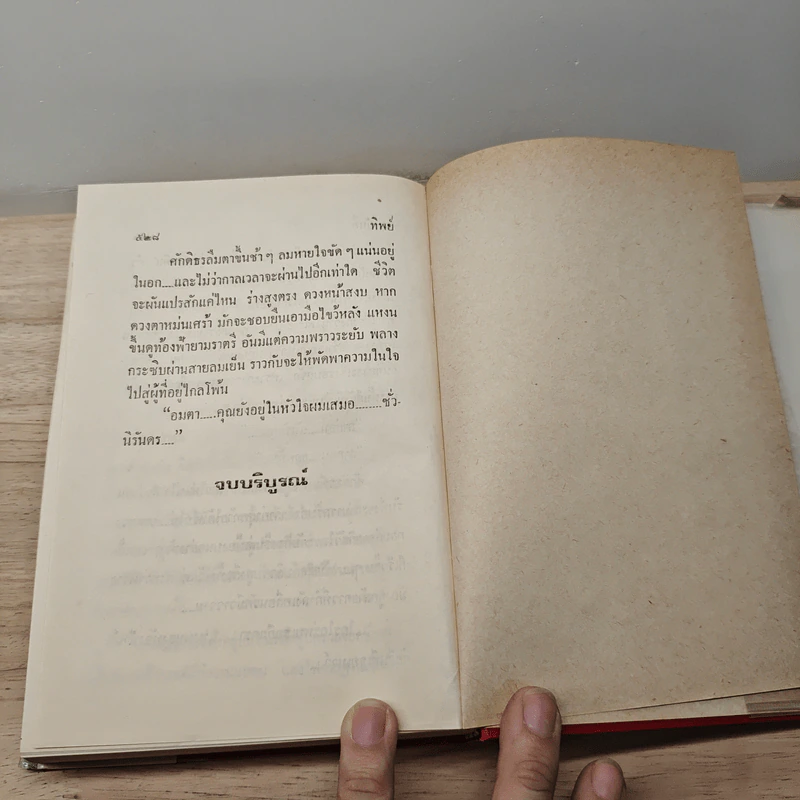 ๕๒๘
ทิพย์
ศักดิธรลืมตาขึ้นช้า ๆ ลมหายใจขัด ๆ แน่นอยู่
ในอก.....และไม่ว่ากาลเวลาจะผ่านไปอีกเท่าใด ชีวิต
จะผันแปรสักแค่ไหน ร่างสูงตรง ดวงหน้าสงบ หาก
ดวงตาหม่นเศร้า มักจะชอบยืนเอามือไขว้หลัง แหงน
ขึ้นดูท้องฟ้ายามราตรี อันมีแต่ความพราวระยับ พลาง
กระซิบผ่านสายลมเย็น ราวกับจะให้พัดพาความในใจ
ไปสู่ผู้ที่อยู่ไกลโพ้น
“อมตา.....คุณยังอยู่ในหัวใจผมเสมอ........ชั่ว-
นิรันดร....”
จบบริบูรณ์